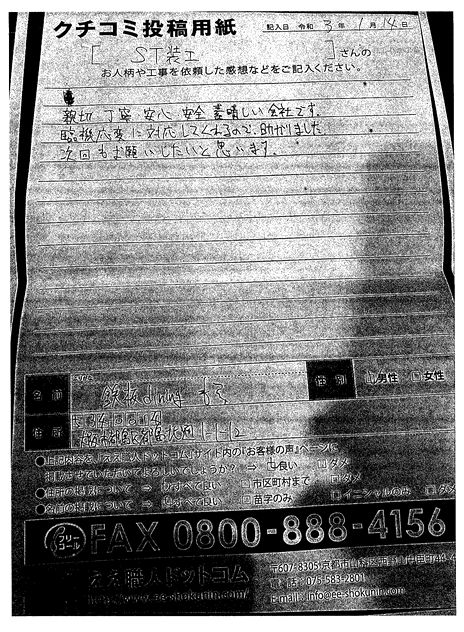 クチコミ投稿用紙
記入日 令和 3 年 1 月 14 日
[ ST装工 ] さんの
お人柄や工事を依頼した感想などをご記入ください。
親切 丁寧 安心 安全 素晴しい会社です。
臨機応変に対応してくれるので、助かりました。
次回もお願いしたいと思います。
名前 鉄板dining
性別 男性 □女性
住所 〒534
大阪市都島区 1-1-12
●上記内容を、「ええ職人ドットコム」サイト内の「お客様の声」ページに
掲載させていただいてよろしいでしょうか? ⇒ 良い □ダメ
●住所の掲載について ⇒ すべて良い □市区町村まで □ダメ
●名前の掲載について ⇒ すべて良い □苗字のみ □イニシャルのみ □ダメ
フリーコール FAX 0800-888-4156
ええ職人ドットコム
〒607-8305 京都市山科区西野山中臣町44-4
電話：075-583-2801
http://www.ee-shokunin.com/ E-mail：info@ee-shokunin.com